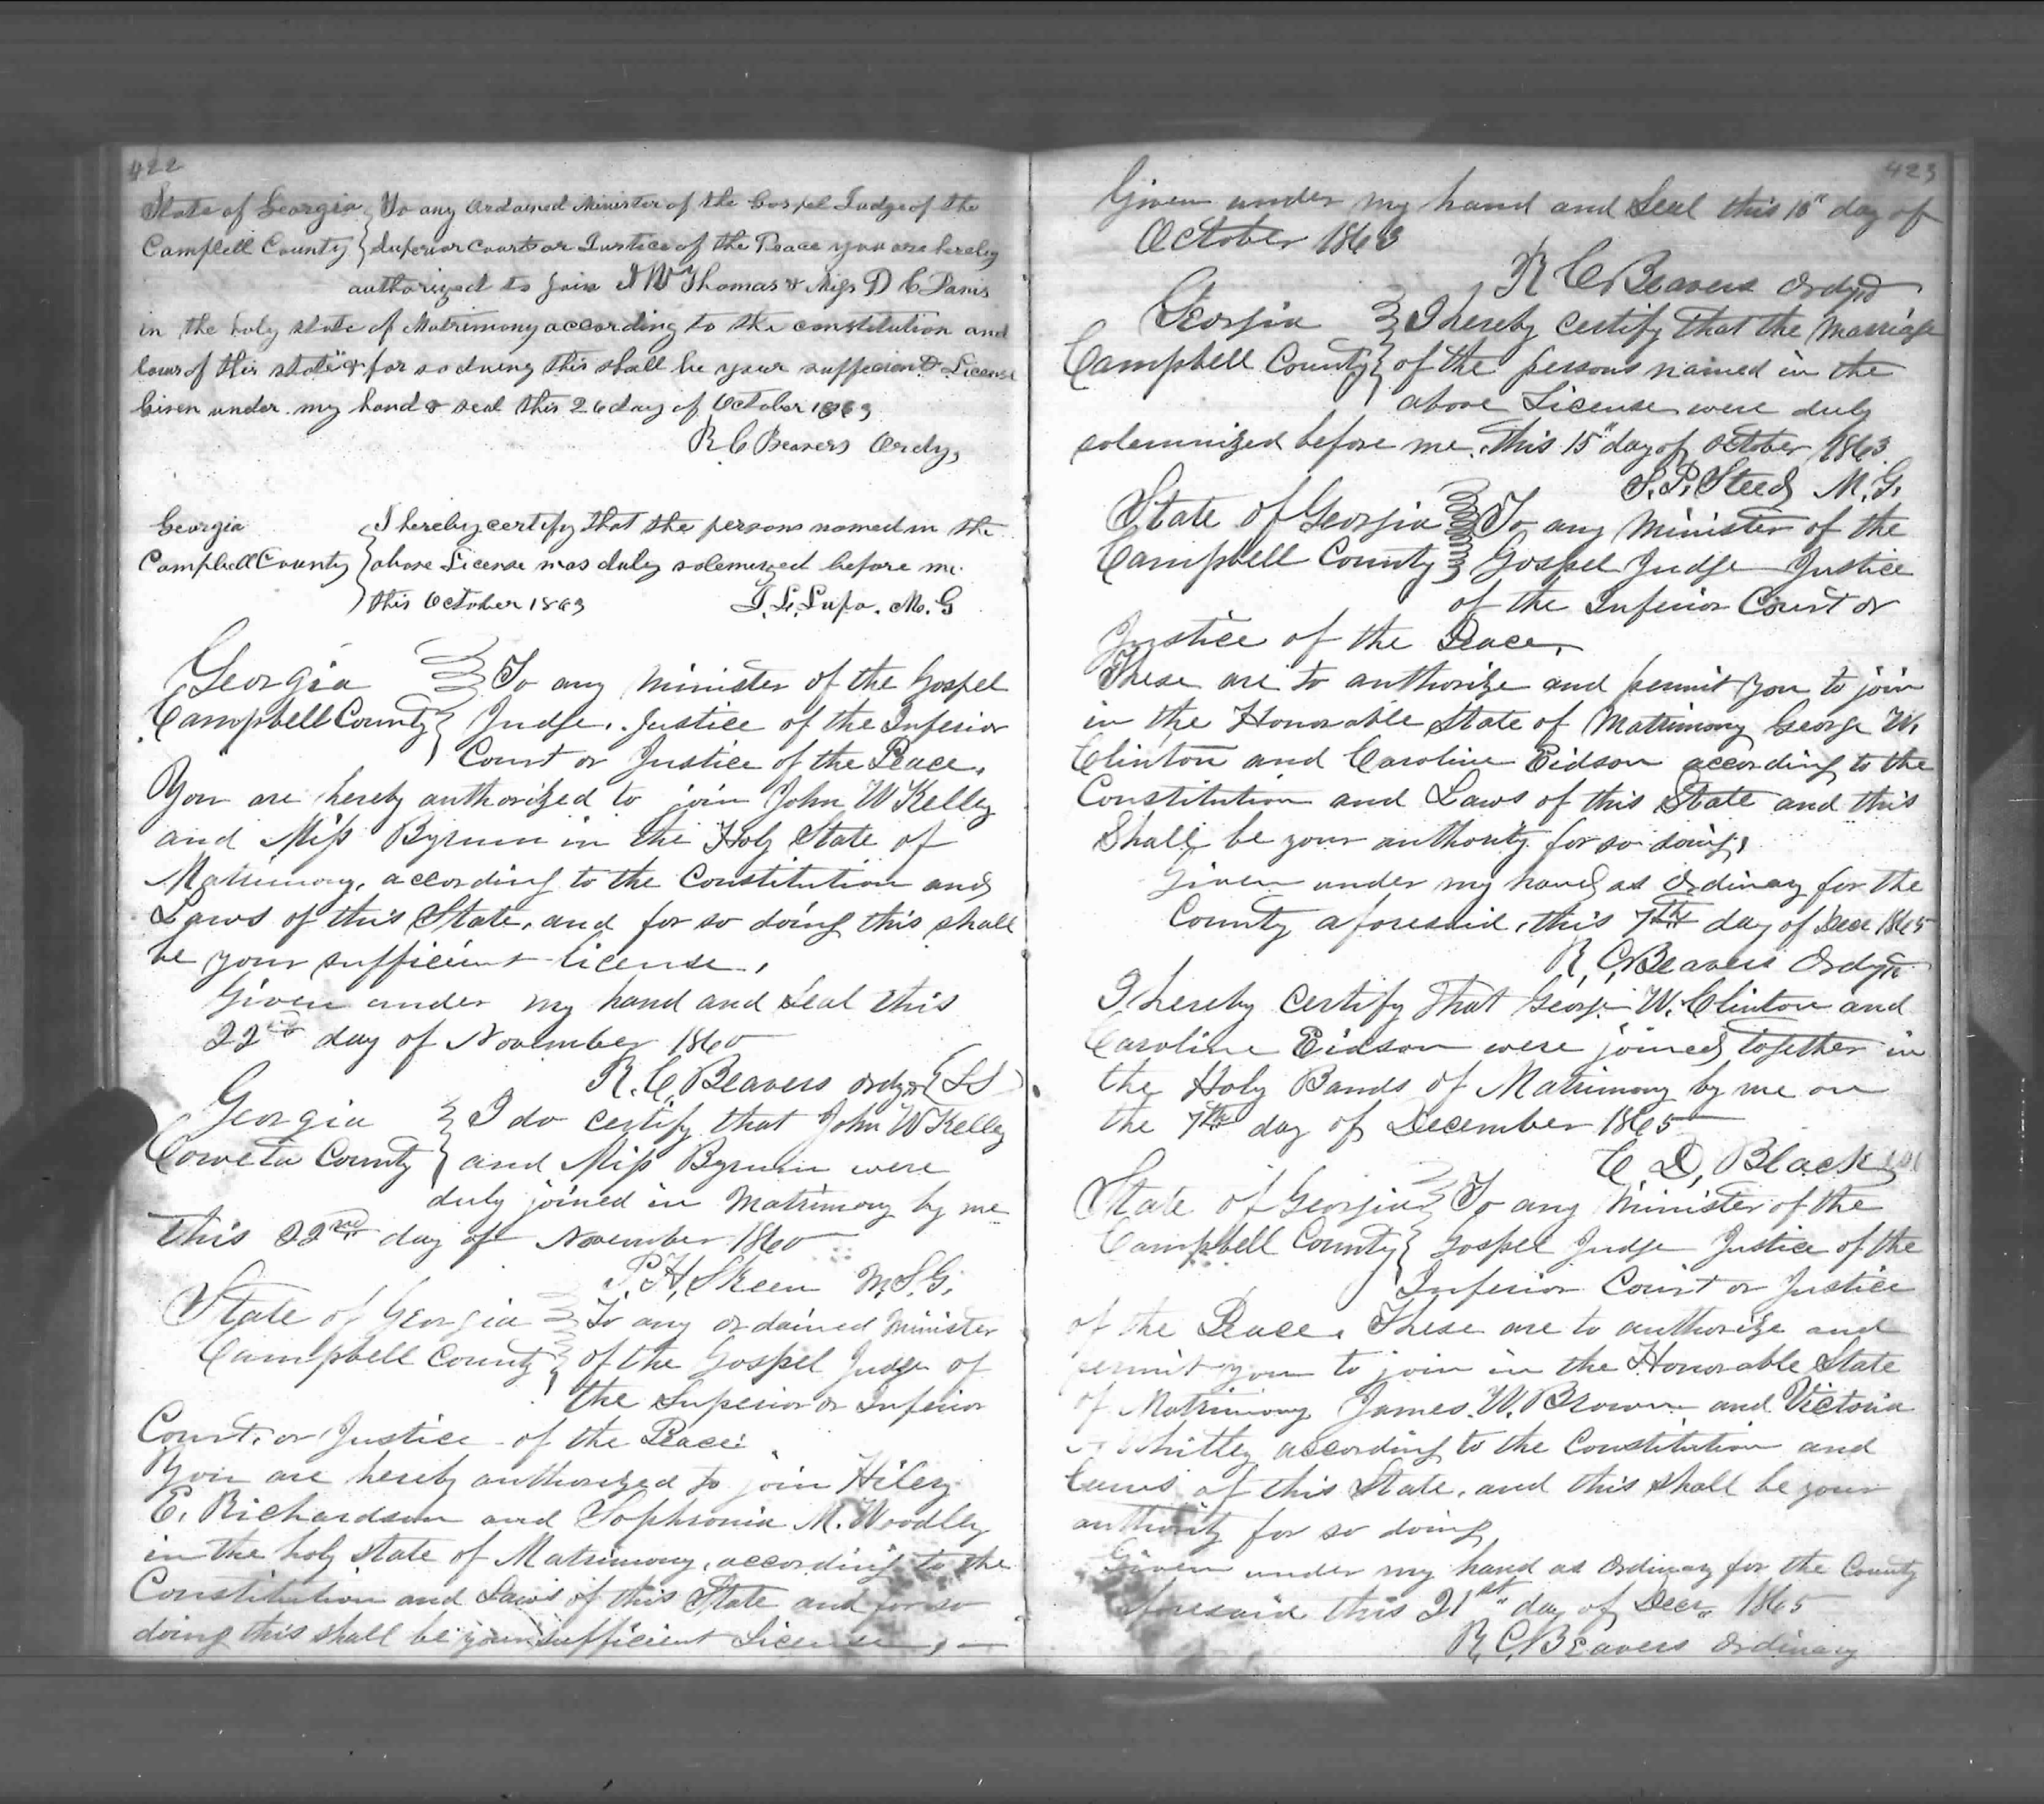 422
State of Georgia To any ordained Minister of the Gospel Judge of the
Campbell County Superior Courts or Justice of the Peace you are hereby
authorized to join J W Thomas & Miss D C Davis
in the holy state of Matrimony according to the constitution and
laws of this state & for so doing this shall be your sufficient License
Given under my hand & seal this 26 day of October 1863
R C Beavers Ordy,
Georgia I hereby certify that the persons named in the
Campbell County above License was duly solemnized before me
this October 1863 Lupo. M. G
Georgia To any Minister of the Gospel
Campbell County Judge, Justice of the Inferior
Court or Justice of the Peace.
You are hereby authorized to join John W Kelley
and Miss Byrum in the Holy State of
Matrimony, according to the Constitution and
Laws of this State, and for so doing this shall
be your sufficient license.
Given under my hand and Seal this
22nd day of November 1860
R. C. Beavers Ordy LS
Georgia I do certify that John W Kelley
Coweta County and Miss Byrum were
duly joined in Matrimony by me
This 22nd day of November 1860
P. H. Skeen M. S. G.
State of Georgia To any ordained Minister
Campbell County of the Gospel Judge of
the Superior or Inferior
Court, or Justice of the Peace.
You are hereby authorized to join Hiley
E. Richardson and Sophronia M. Woodley
in the holy state of Matrimony, according to the
Constitution and Laws of this State and for so
doing this shall be your sufficient License,
423
Given under my hand and Seal this 10" day of
October 1863
R C Beavers Ordy
Georgia I hereby certify that the marriage
Campbell County of the persons named in the
above License were duly
solemnized before me, this 15" day of October 1863
S. P. Steed M. G.
State of Georgia To any Minister of the
Campbell County Gospel Judge Justice
of the Inferior Court or
Justice of the Peace,
These are to authorize and permit you to join
in the Honorable State of Matrimony George W.
Clinton and Caroline Eidson according to the
Constitution and Laws of this State and this
Shall be your authority for so doing,
Given under my hand as Ordinary for the
County aforesaid, this 7th day of Decr 1865
R. C. Beavers Ordy
I hereby certify that George W. Clinton and
Caroline Eidson were joined together in
the Holy Bands of Matrimony by me on
the 7th day of December 1865
C D, Black
State of Georgia To any Minister of the
Campbell County Gospel Judge Justice of the
Inferior Court or Justice
of the Peace. These are to authorize and
permit you to join in the Honorable State
of Matrimony James. W. Brown and Victoria
Whitley according to the Constitution and
Laws of this State, and this shall be your
authority for so doing,
Given under my hand as Ordinary for the County
aforesaid this 21st day of Decr, 1865
R, C, Beavers Ordinary